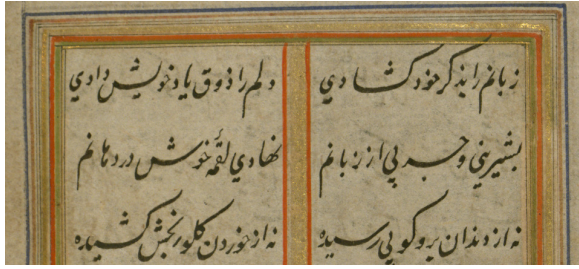 زبانم را بذکر خود کشادي دلم را ذوق ياد خويش دادي
بشيريني و چربي از زبانم نهادي لقمهٔ خوش در دهانم
نه از دندان برو کوبي رسيده نه از خوردن کلو رنجش کشيده